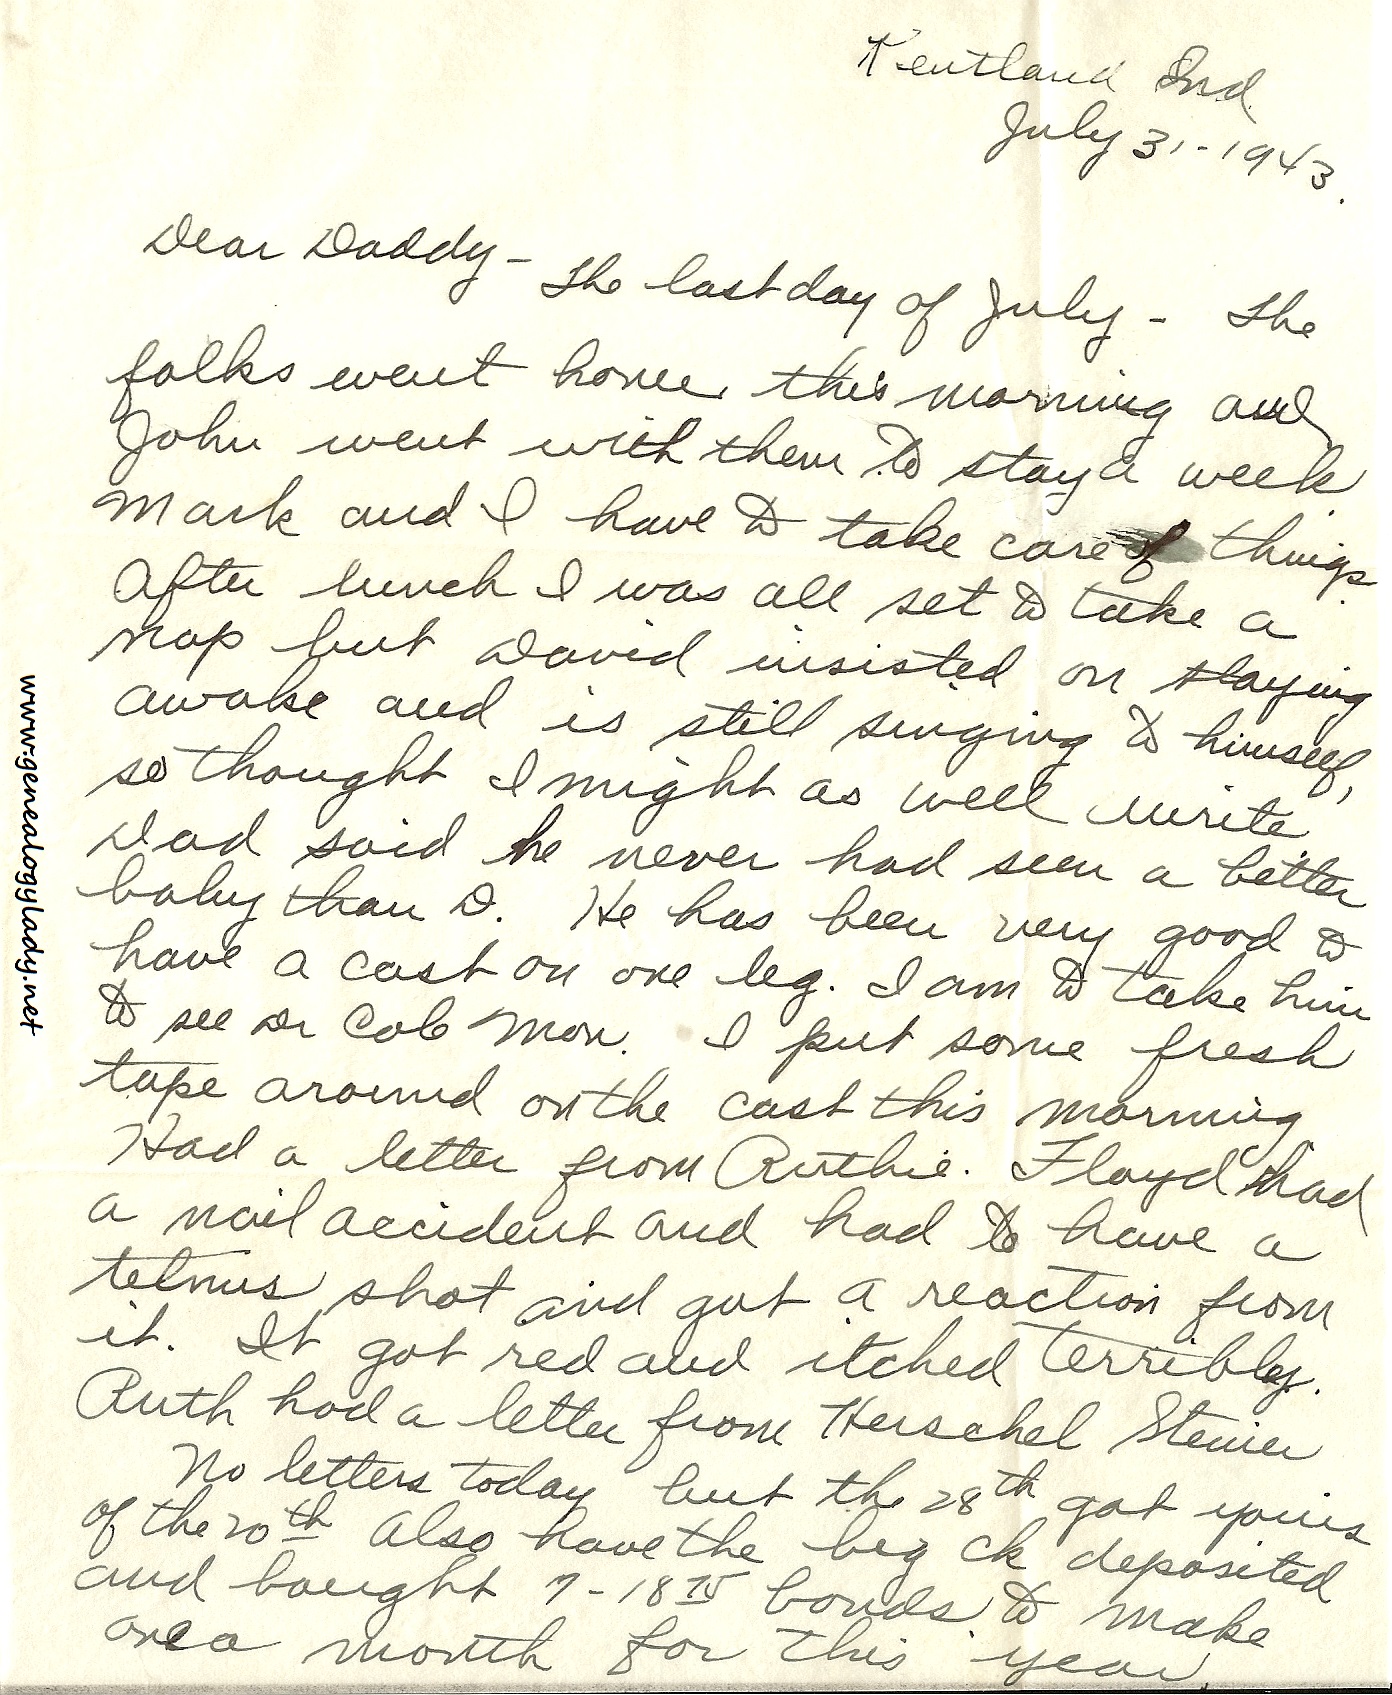 Kentland Ind
July 31-1943.
Dear Daddy - The last day of July - The
folks went home this morning and
John went with them to stay a week
Mark and I have to take care of things
After lunch I was all set to take a
nap but David insisted on staying
awake and is still singing to himself,
so thought I might as well write
Dad said he never had seen a better
baby than D. He has been very good to
have a cast on one leg. I am to take him
to see Dr Cole Mon. I put some fresh
tape around on the cast this morning
Had a letter from Ruthie. Floyd had
a nail accident and had to have a
tetnus shot and got a reaction from
it. It got red and itched terribly.
Ruth had a letter from Herschel Steiner
No letters today but the 28th got yours
of the 20th Also have the big ck deposited
and bought 7-18 75 bonds to make
one a month for this year.
www.genealogylady.net